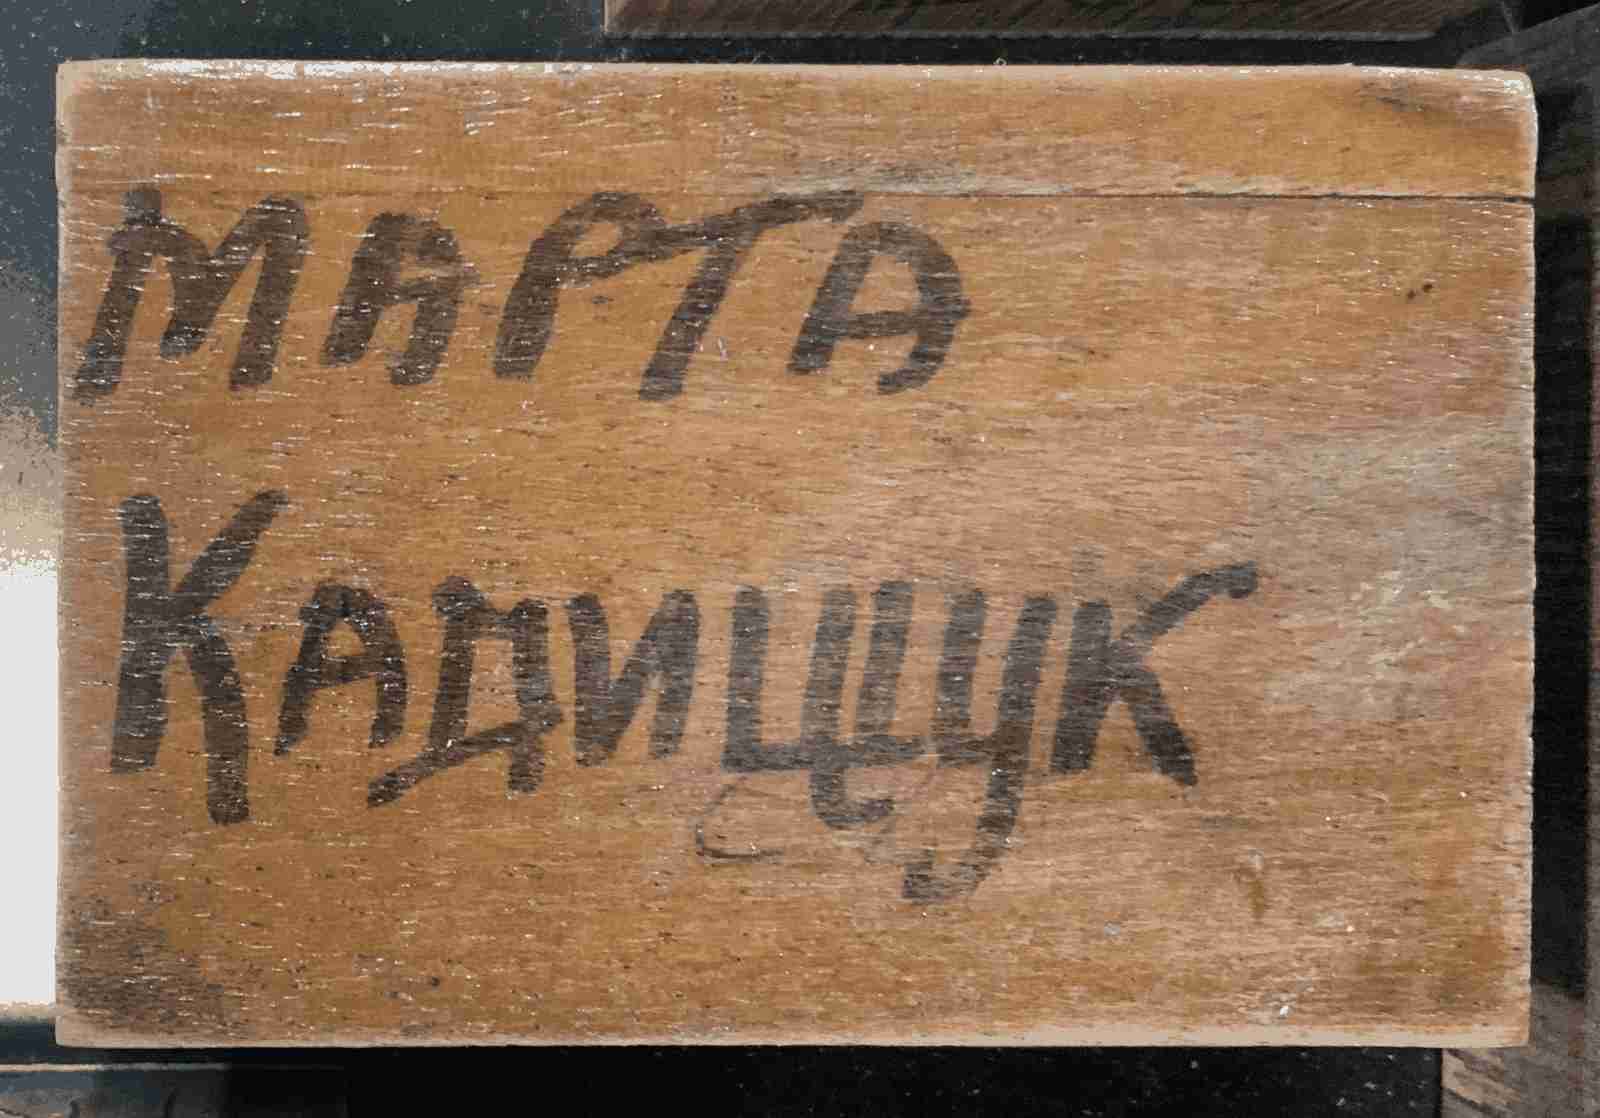 МАРТА
КАДИЩУК